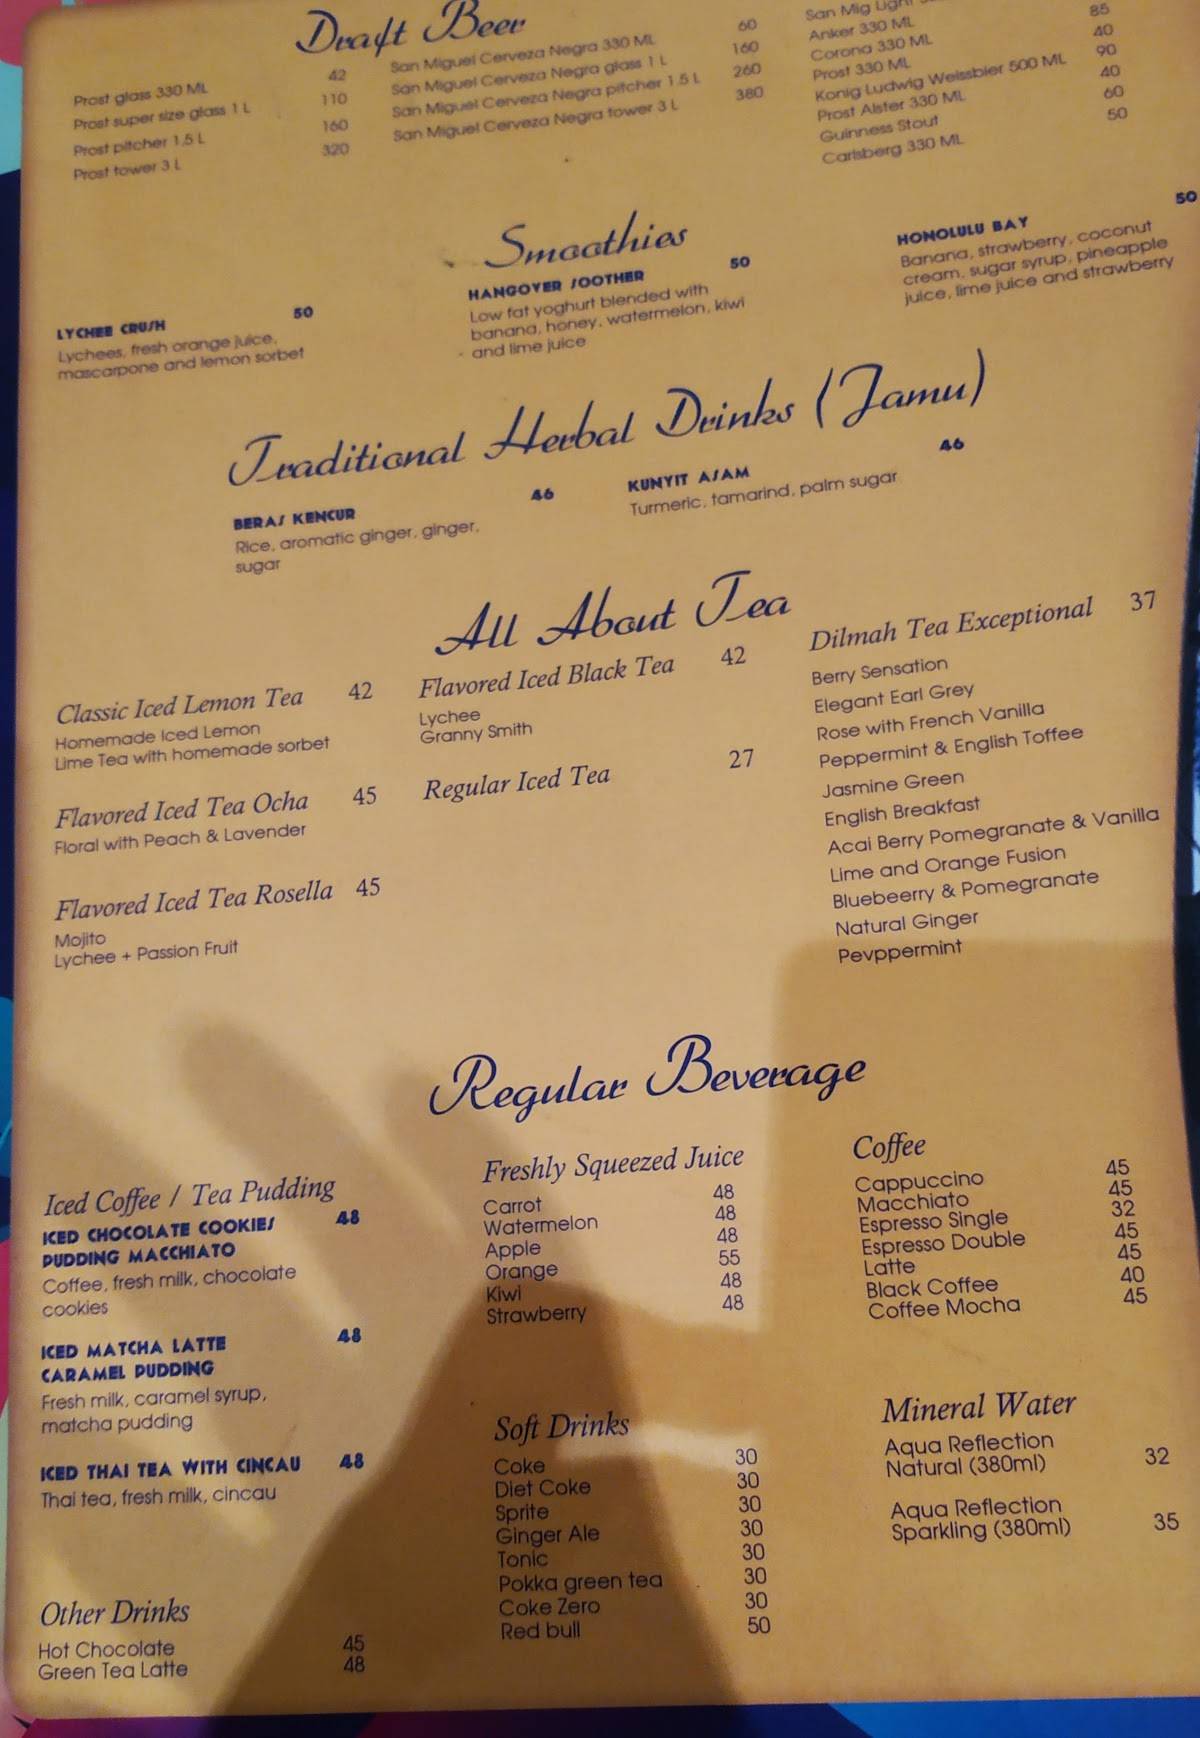 Draft Beer
Prost glass 330 ML 42
Prost super size glass 1 L 110
Prost pitcher 1,5 L 160
Prost tower 3 L 320
San Miguel Cerveza Negra 330 ML 60
San Miguel Cerveza Negra glass 1 L 160
San Miguel Cerveza Negra pitcher 1.5 L 260
San Miguel Cerveza Negra tower 3 L 380
San Mig Light
Anker 330 ML
Corona 330 ML 85
Prost 330 ML 40
Konig Ludwig Weissbier 500 ML 90
Prost Alster 330 ML 40
Guinness Stout 60
Carlsberg 330 ML 50
Smoothies
LYCHEE CRUSH 50
Lychees, fresh orange juice,
mascarpone and lemon sorbet
HANGOVER SOOTHER 50
Low fat yoghurt blended with
banana, honey, watermelon, kiwi
and lime juice
HONOLULU BAY 50
Banana, strawberry, coconut
cream, sugar syrup, pineapple
juice, lime juice and strawberry
Traditional Herbal Drinks (Jamu)
BERAS KENCUR 46
Rice, aromatic ginger, ginger,
sugar
KUNYIT ASAM 46
Turmeric, tamarind, palm sugar
All About Tea
Classic Iced Lemon Tea 42
Homemade Iced Lemon
Lime Tea with homemade sorbet
Flavored Iced Tea Ocha 45
Floral with Peach & Lavender
Flavored Iced Tea Rosella 45
Mojito
Lychee + Passion Fruit
Flavored Iced Black Tea 42
Lychee
Granny Smith
Regular Iced Tea 27
Dilmah Tea Exceptional 37
Berry Sensation
Elegant Earl Grey
Rose with French Vanilla
Peppermint & English Toffee
Jasmine Green
English Breakfast
Acai Berry Pomegranate & Vanilla
Lime and Orange Fusion
Bluebeerry & Pomegranate
Natural Ginger
Pevppermint
Regular Beverage
Iced Coffee / Tea Pudding
ICED CHOCOLATE COOKIES 48
PUDDING MACCHIATO
Coffee, fresh milk, chocolate
cookies
ICED MATCHA LATTE 48
CARAMEL PUDDING
Fresh milk, caramel syrup,
matcha pudding
ICED THAI TEA WITH CINCAU 48
Thai tea, fresh milk, cincau
Other Drinks
Hot Chocolate 45
Green Tea Latte 48
Freshly Squeezed Juice
Carrot 48
Watermelon 48
Apple 48
Orange 55
Kiwi 48
Strawberry 48
Soft Drinks
Coke 30
Diet Coke 30
Sprite 30
Ginger Ale 30
Tonic 30
Pokka green tea 30
Coke Zero 30
Red bull 50
Coffee
Cappuccino 45
Macchiato 45
Espresso Single 32
Espresso Double 45
Latte 45
Black Coffee 40
Coffee Mocha 45
Mineral Water
Aqua Reflection
Natural (380ml) 32
Aqua Reflection
Sparkling (380ml) 35